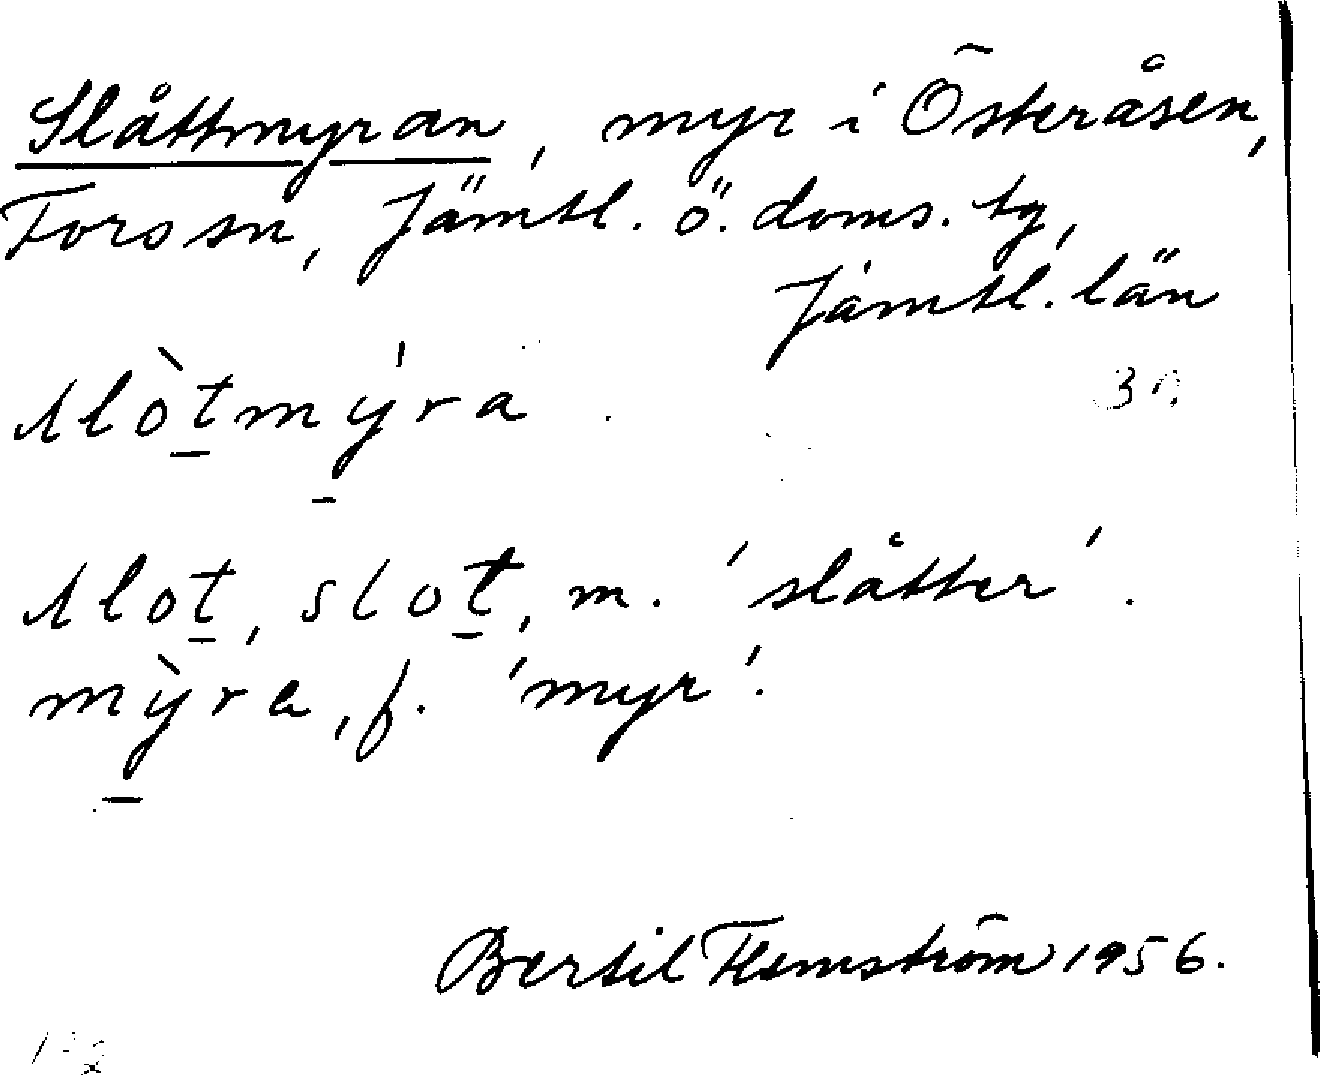 Slåttmyran, myr i Österåsen,
Fors sn, Jämtl. ö. doms. tg,
Jämtl. län
slòt̲mý̲ra
slot̲, slot̲, m. 'slåtter'.
mỳ̲ra, f. 'myr'.
Bertil Flemström 1956.